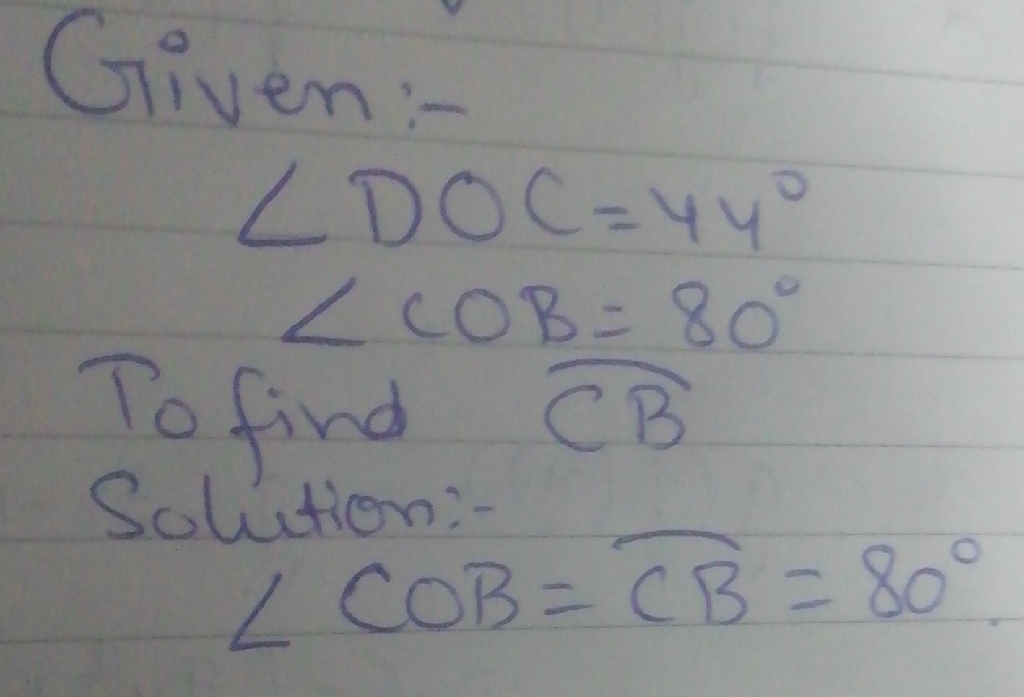 Given:-
∠DOC=44°
∠COB=80°
To find C͡B
Solution:-
∠COB=C͡B=80°.